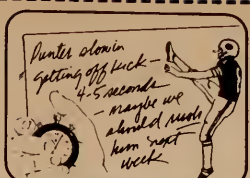 Punter slow in
getting off kick —
4-5 seconds
— maybe we
should rush
him next
week